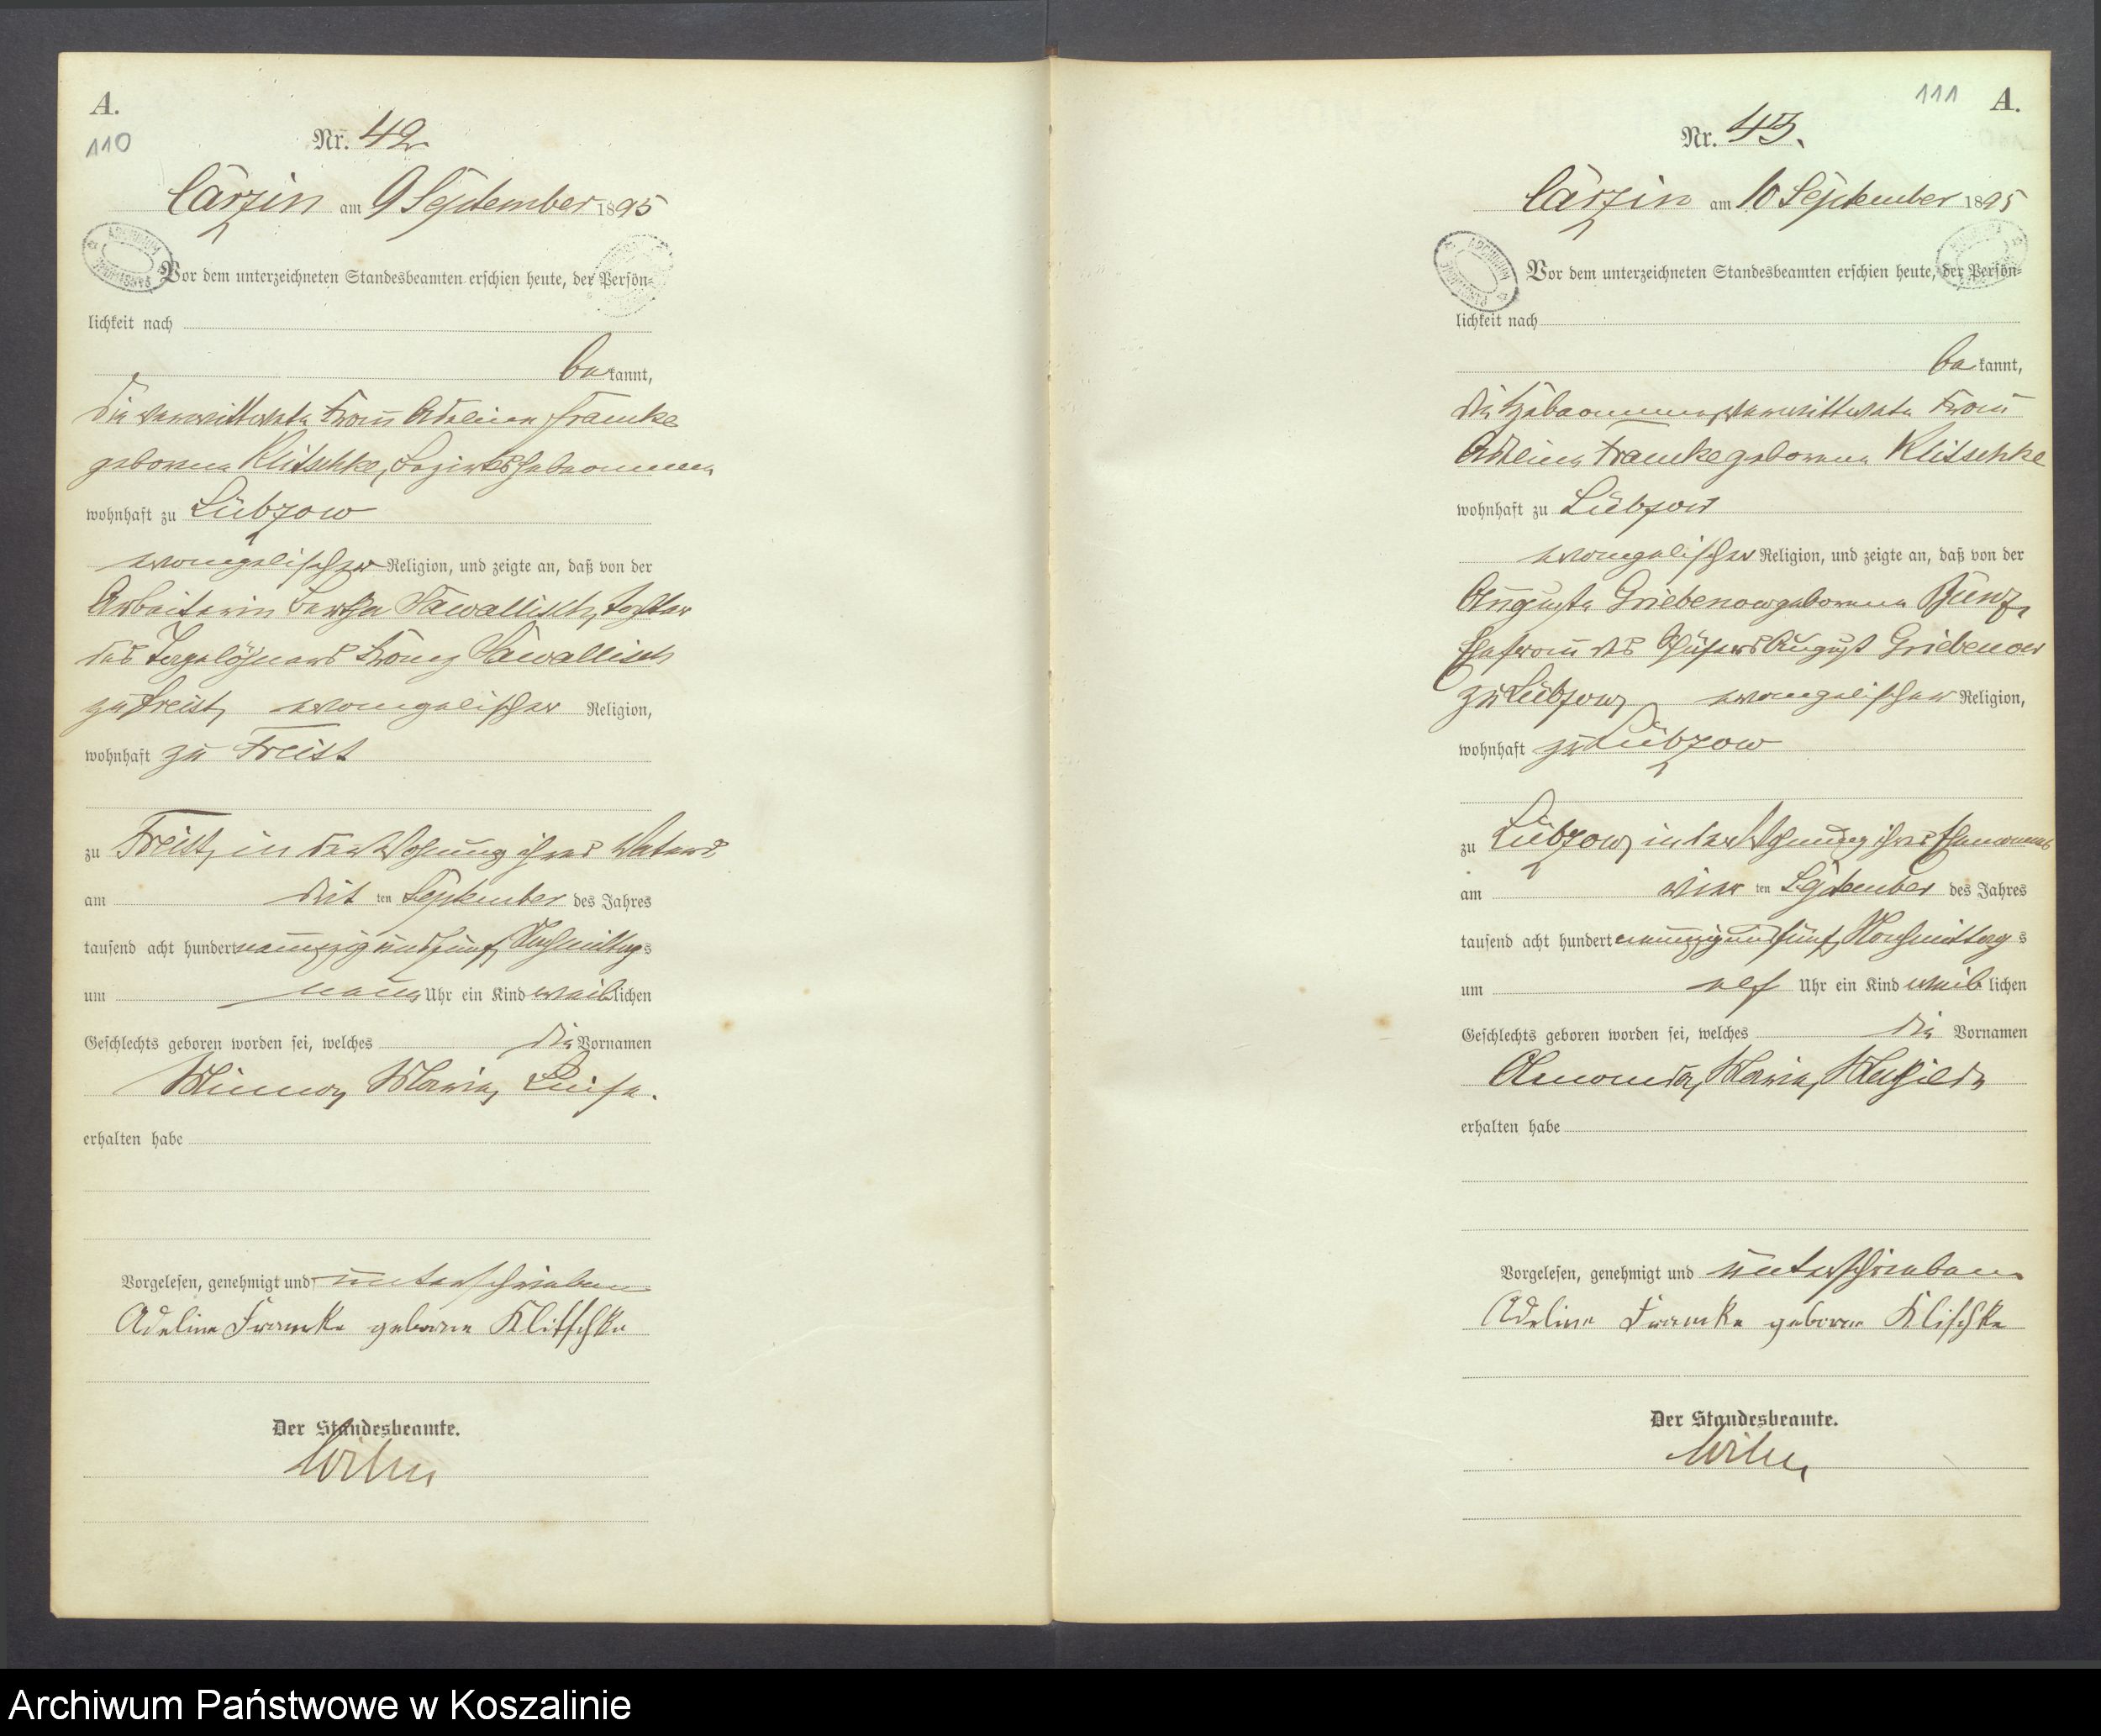 A.
110
Nr. 42
Carzin am 9 September 1895
Vor dem unterzeichneten Standesbeamten erschien heute, der Persön-
lichkeit nach
bekannt,
die verwittwete Frau Adeline Framke
geborene Klitschke, Bezirkshebamme
wohnhaft zu Lübzow
evangelischer Religion, und zeigte an, daß von der
Arbeiterin Bertha Sawallisch, Tochter
des Tagelöhners Franz Sawallisch
zu Freist, evangelischer Religion,
wohnhaft zu Freist
zu Freist, in der Wohnung ihres Vaters
am ten September des Jahres
tausend acht hundert neunzig und fünf Nachmittags
um neun Uhr ein Kind weiblichen
Geschlechts geboren worden sei, welches die Vornamen
Minna, Marie, Luise.
erhalten habe
Vorgelesen, genehmigt und unterschrieben
Adeline Framke geborene Klitschke
Der Standesbeamte.
111 A.
Nr. 43.
Carzin am 10 September 1895
Vor dem unterzeichneten Standesbeamten erschien heute, der Persön-
lichkeit nach
bekannt,
die Hebamme, verwittwete Frau
Adeline Framke geborene Klitschke
wohnhaft zu Lübzow
evangelischer Religion, und zeigte an, daß von der
Auguste Griebenow geborene
Ehefrau des August Griebenow
zu Lübzow, evangelischer Religion,
wohnhaft zu Lübzow
zu Lübzow, in der Wohnung ihres Ehemannes
am vier ten September des Jahres
tausend acht hundert neunzig und fünf, Nachmittag s
um elf Uhr ein Kind weib lichen
Geschlechts geboren worden sei, welches die Vornamen
Amanda, Marie, Mathilde
erhalten habe
Vorgelesen, genehmigt und unterschrieben
Adeline Framke geborene Klischke
Der Standesbeamte.
Archiwum Państwowe w Koszalinie